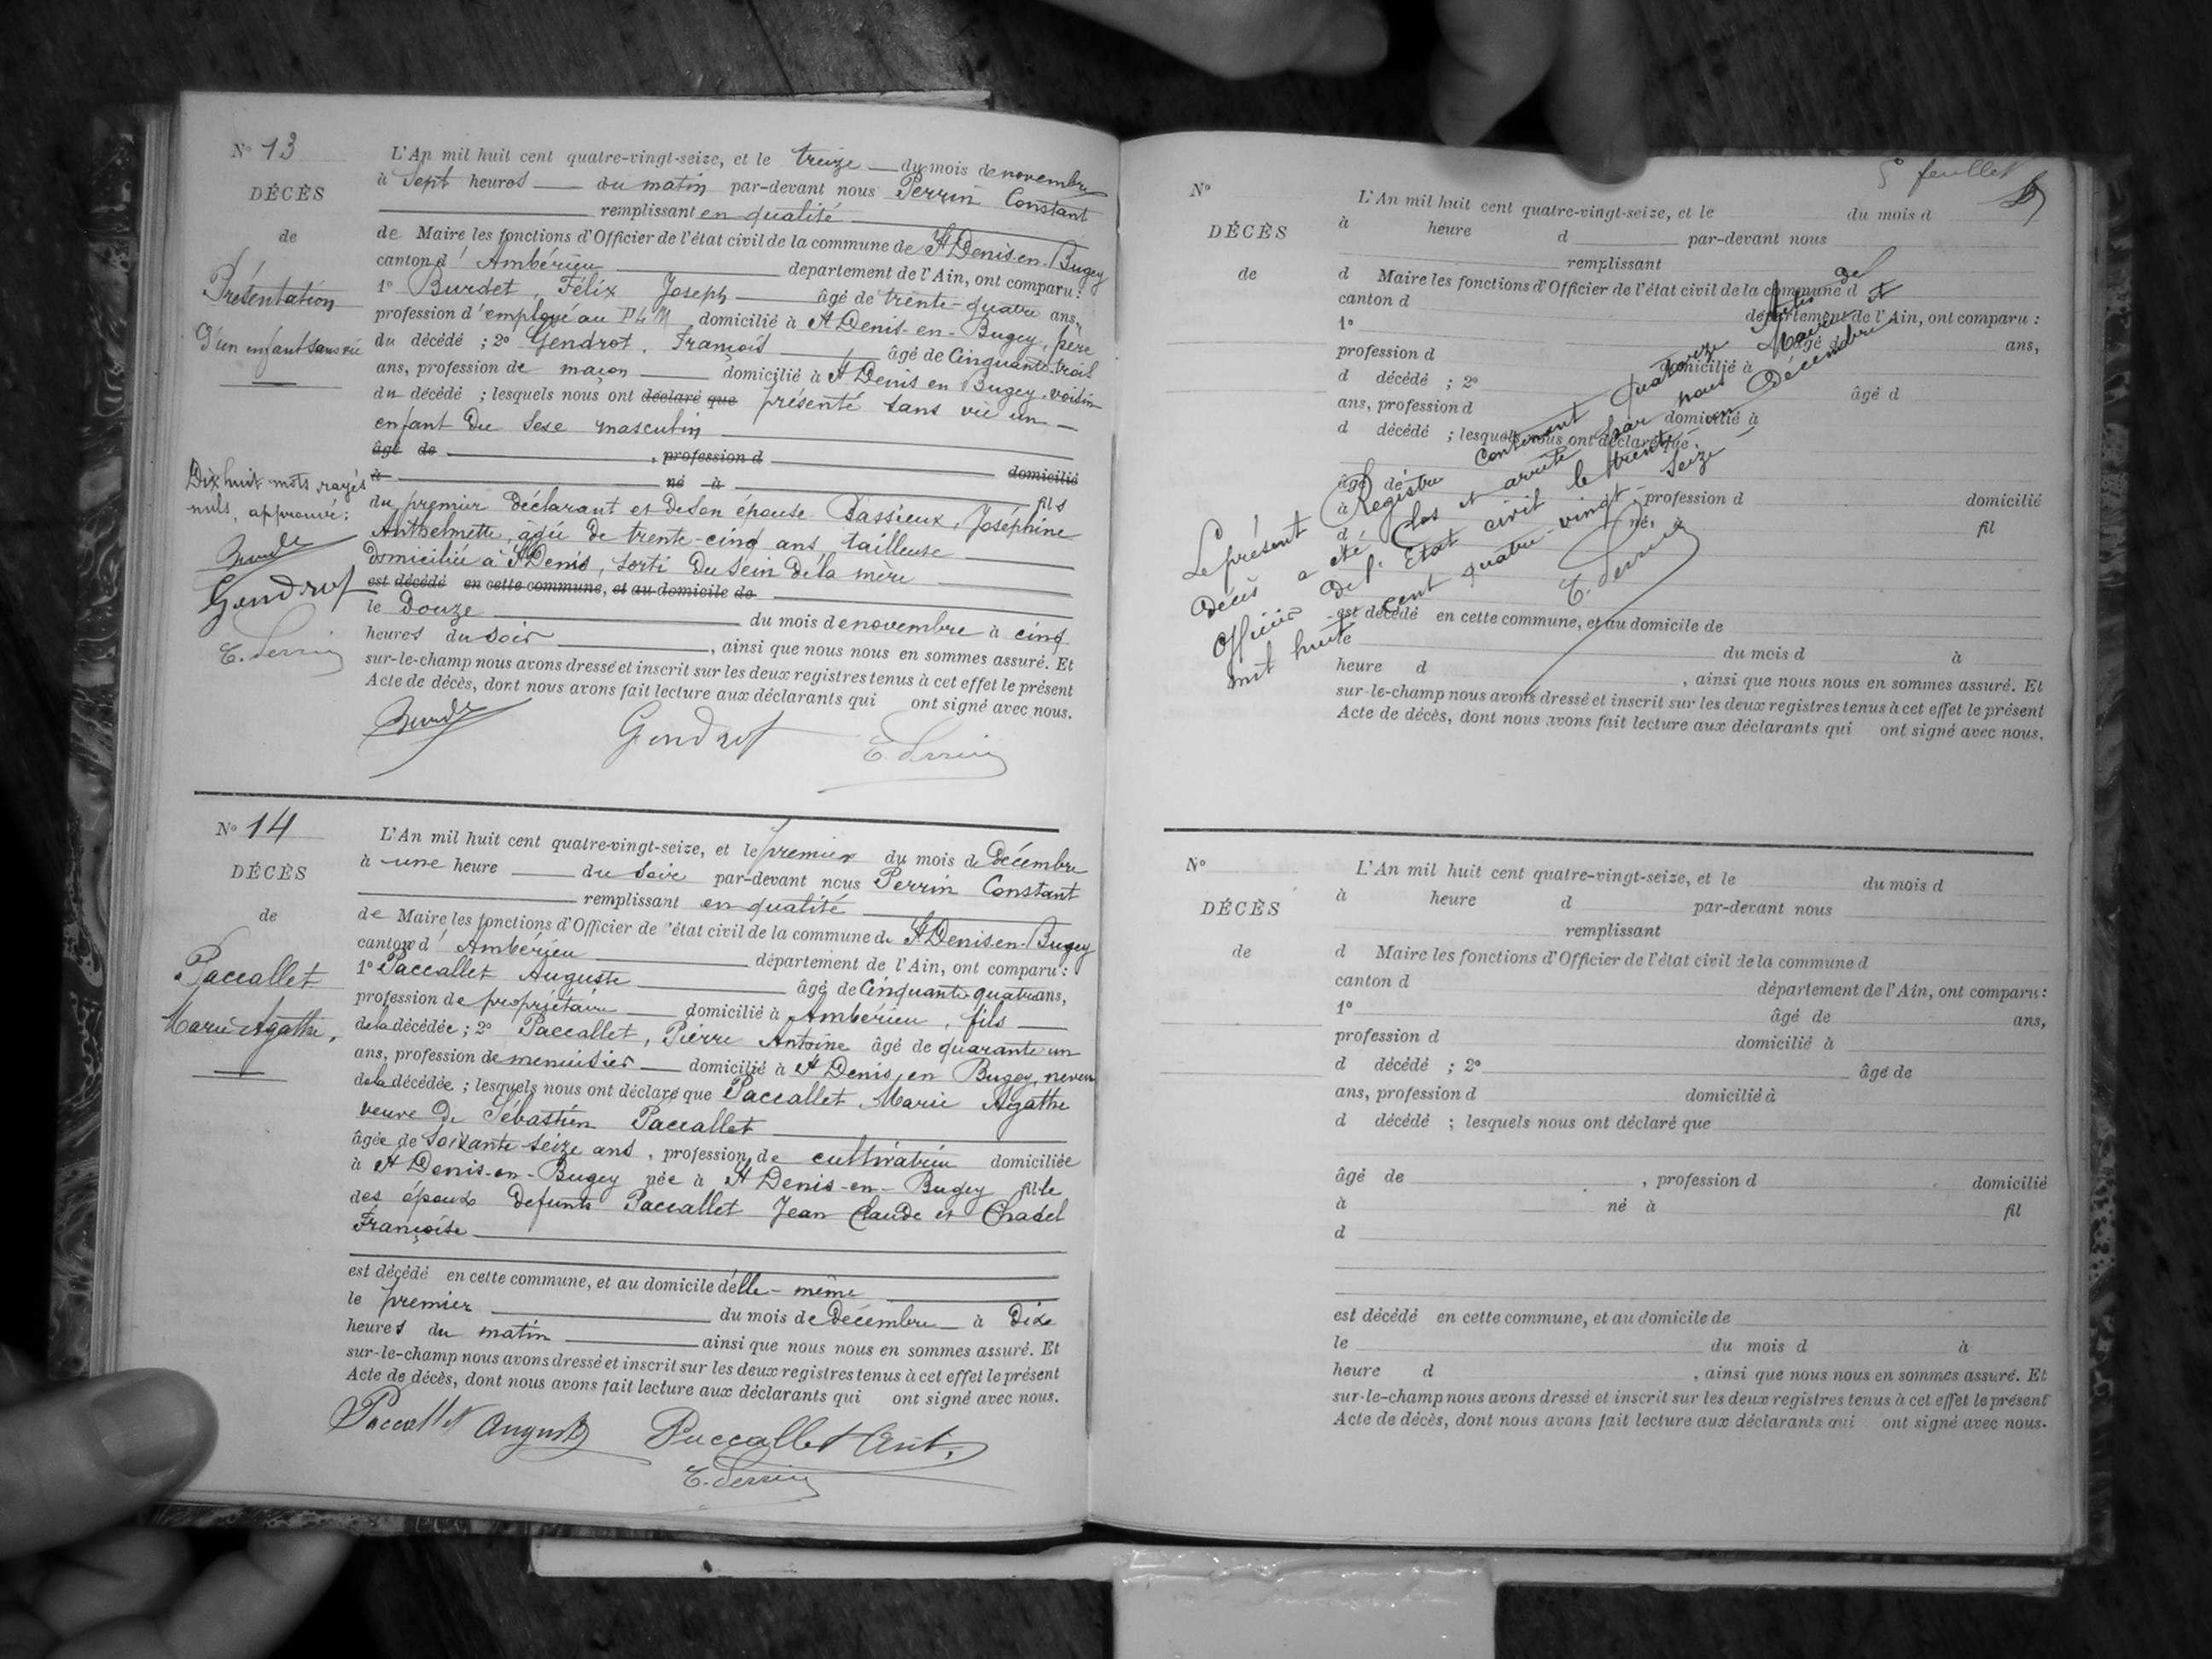 N° 13
DÉCÈS
de
Présentation
D'un enfant sans vie
Dix huit mots rayés
nuls, approuvé :
Gendrot
C. Perrin
L'An mil huit cent quatre-vingt-seize, et le treize du mois de novembre
à Sept heures du matin par-devant nous Perrin Constant
remplissant en qualité
de Maire les fonctions d'Officier de l'état civil de la commune de St Denis-en-Bugey
canton d'Ambérieu département de l'Ain, ont comparu :
1° Burdet, Félix Joseph âgé de trente-quatre ans,
profession d'employé au P L M domicilié à St Denis-en-Bugey, père
du décédé ; 2° Gendrot, François âgé de Cinquante-trois
ans, profession de maçon domicilié à St Denis en Bugey, voisin
du décédé ; lesquels nous ont déclaré que présenté sans vie un
enfant du Sexe masculin
âgé de , profession d domicilié
à né à fils
du premier déclarant et de son épouse Dassieux, Joséphine
Anthelmette, âgée de trente-cinq ans, tailleuse
domiciliée à St Denis, sorti du sein de la mère
est décédé en cette commune, et au domicile de
le Douze du mois de novembre à cinq
heures du soir , ainsi que nous nous en sommes assuré. Et
sur-le-champ nous avons dressé et inscrit sur les deux registres tenus à cet effet le présent
Acte de décès, dont nous avons fait lecture aux déclarants qui ont signé avec nous.
Gendrot C. Perrin
N° 14
DÉCÈS
de
Paccallet
Marie Agathe,
L'An mil huit cent quatre-vingt-seize, et le premier du mois de Décembre
à une heure du soir par-devant nous Perrin Constant
remplissant en qualité
de Maire les fonctions d'Officier de l'état civil de la commune de St Denis-en-Bugey
canton d'Ambérieu département de l'Ain, ont comparu :
1° Paccallet Auguste âgé de Cinquante quatre ans,
profession de propriétaire domicilié à Ambérieu, fils
de la décédée ; 2° Paccallet, Pierre Antoine âgé de quarante un
ans, profession de menuisier domicilié à St Denis en Bugey, neveu
de la décédée ; lesquels nous ont déclaré que Paccallet, Marie Agathe
veuve de Sébastien Paccallet
âgée de Soixante-seize ans, profession de cultivatrice domiciliée
à St Denis-en-Bugey née à St Denis-en-Bugey fille
des époux défunts Paccallet Jean Claude et Chadel
Françoise
est décédé en cette commune, et au domicile d'elle-même
le premier du mois de Décembre à Dix
heures du matin ainsi que nous nous en sommes assuré. Et
sur-le-champ nous avons dressé et inscrit sur les deux registres tenus à cet effet le présent
Acte de décès, dont nous avons fait lecture aux déclarants qui ont signé avec nous.
Paccallet Auguste Paccallet Ant.
C. Perrin
5e feuillet
N°
DÉCÈS
de
L'An mil huit cent quatre-vingt-seize, et le du mois d
à heure d par-devant nous
remplissant
d Maire les fonctions d'Officier de l'état civil de la commune d
canton d département de l'Ain, ont comparu :
1° âgé de ans,
profession d domicilié à
d décédé ; 2° âgé d
ans, profession d domicilié à
d décédé ; lesquels nous ont déclaré que
âgé de , profession d domicilié
à né à fil
d
est décédé en cette commune, et au domicile de
le du mois d à
heure d , ainsi que nous nous en sommes assuré. Et
sur-le-champ nous avons dressé et inscrit sur les deux registres tenus à cet effet le présent
Acte de décès, dont nous avons fait lecture aux déclarants qui ont signé avec nous.
Le présent Registre contenant quatorze Actes de
Décès a été clos et arrêté par nous Maire et
Officier de l'Etat civil le trente-un Décembre
mil huit cent quatre-vingt-seize
C. Perrin
N°
DÉCÈS
de
L'An mil huit cent quatre-vingt-seize, et le du mois d
à heure d par-devant nous
remplissant
d Maire les fonctions d'Officier de l'état civil de la commune d
canton d département de l'Ain, ont comparu :
1° âgé de ans,
profession d domicilié à
d décédé ; 2° âgé de
ans, profession d domicilié à
d décédé ; lesquels nous ont déclaré que
âgé de , profession d domicilié
à né à fil
d
est décédé en cette commune, et au domicile de
le du mois d à
heure d , ainsi que nous nous en sommes assuré. Et
sur-le-champ nous avons dressé et inscrit sur les deux registres tenus à cet effet le présent
Acte de décès, dont nous avons fait lecture aux déclarants qui ont signé avec nous.